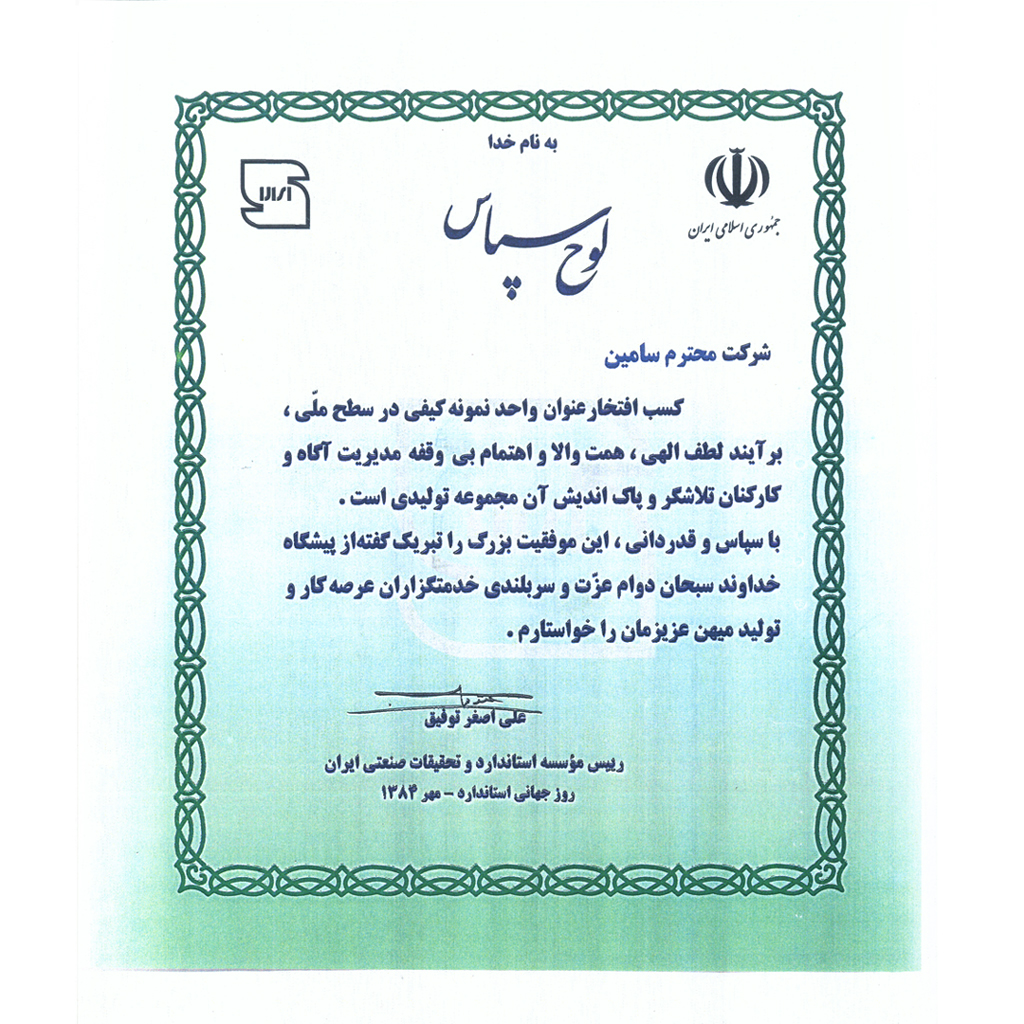 به نام خدا
جمهوری اسلامی ایران
لوح سپاس
شرکت محترم سامین
کسب افتخار عنوان واحد نمونه کیفی در سطح ملّی ،
برآیند لطف الهی ، همت والا و اهتمام بی وقفه مدیریت آگاه و
کارکنان تلاشگر و پاک اندیش آن مجموعه تولیدی است .
با سپاس و قدردانی ، این موفقیت بزرگ را تبریک گفته از پیشگاه
خداوند سبحان دوام عزّت و سربلندی خدمتگزاران عرصه کار و
تولید میهن عزیزمان را خواستارم .
علی اصغر توفیق
رییس مؤسسه استاندارد و تحقیقات صنعتی ایران
روز جهانی استاندارد – مهر ۱۳۸۴